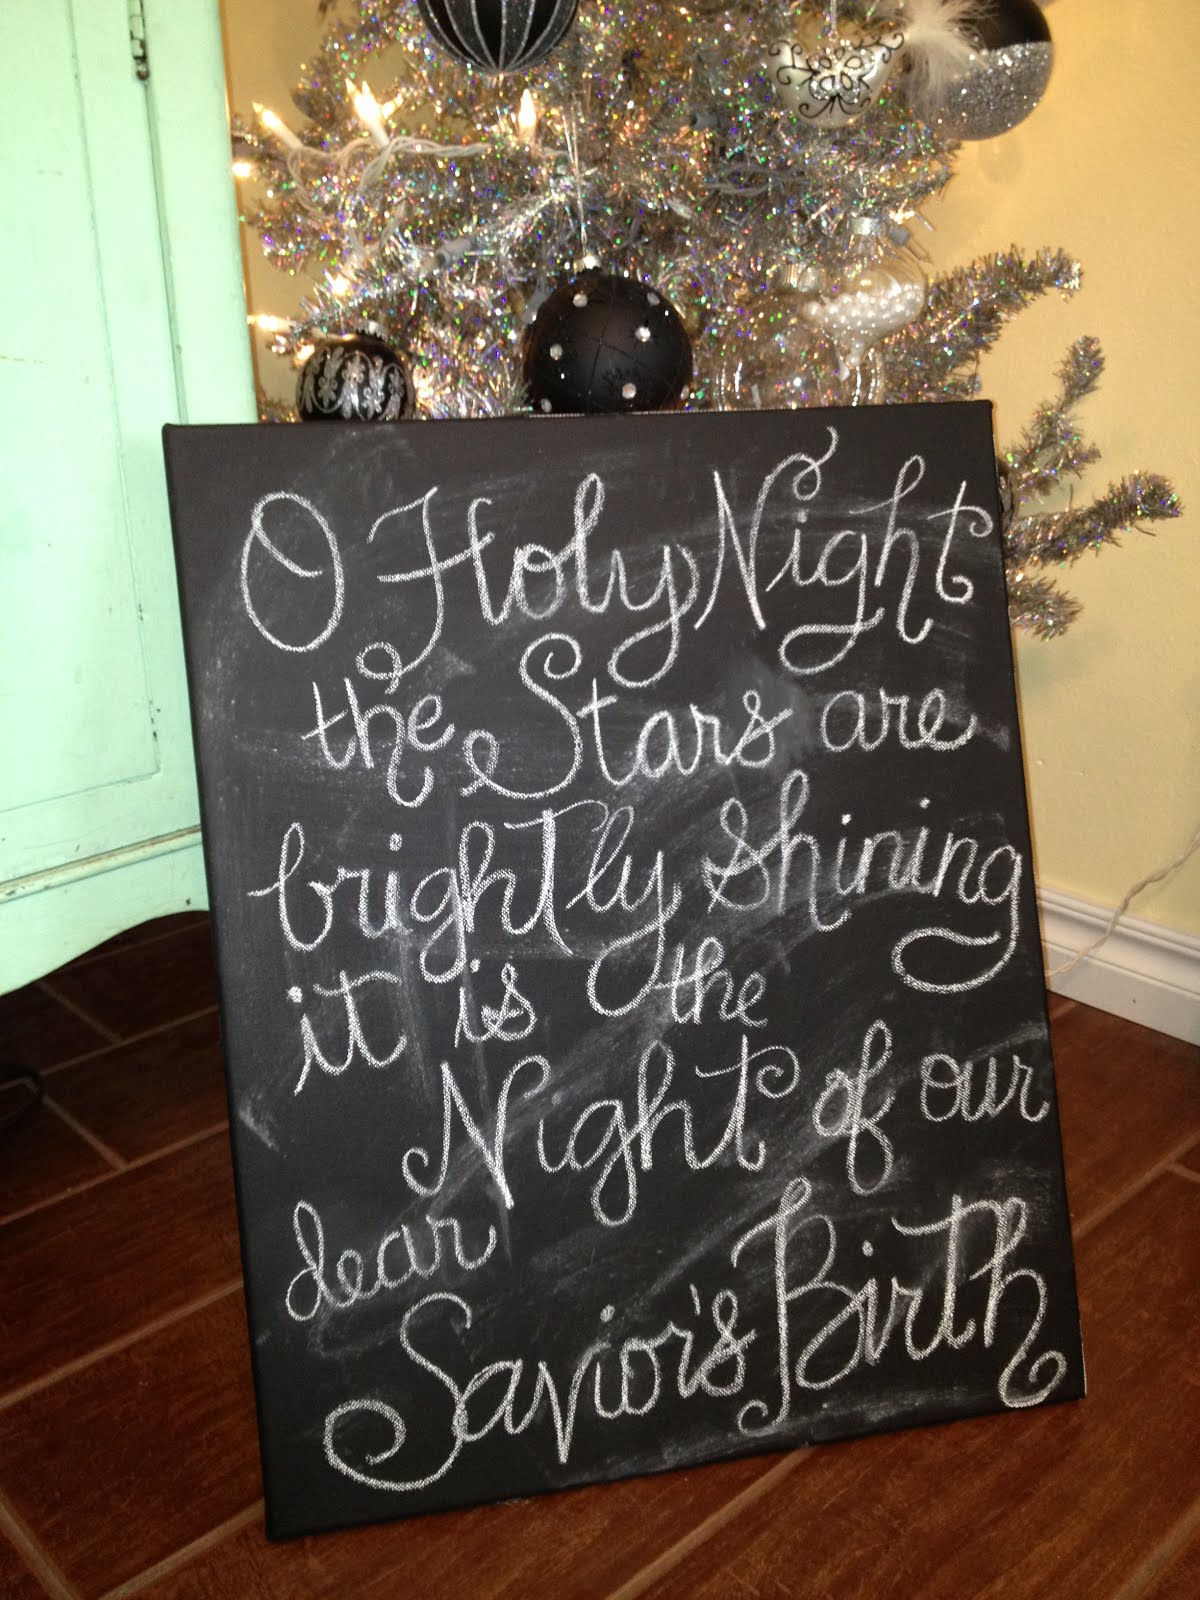 O Holy Night
the Stars are
brightly shining
it is the
Night of our
dear
Savior's Birth